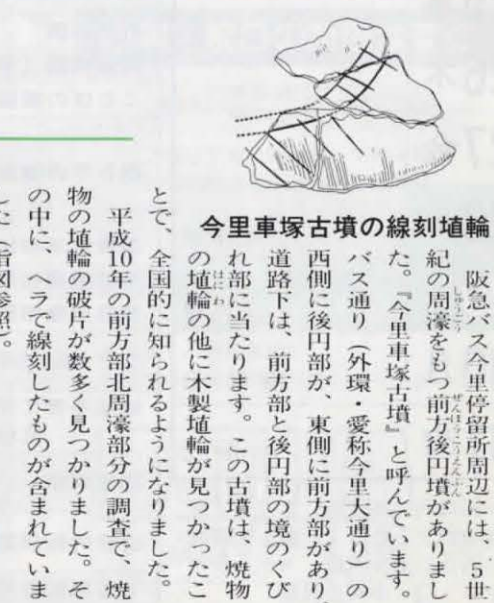 今里車塚古墳の線刻埴輪
阪急バス今里停留所周辺には、5世
紀の周濠をもつ前方後円墳がありまし
た。『今里車塚古墳』と呼んでいます。
バス通り（外環・愛称今里大通り）の
西側に後円部が、東側に前方部があり、
道路下は、前方部と後円部の境のくび
れ部に当たります。この古墳は、焼物
の埴輪の他に木製埴輪が見つかったこ
とで、全国的に知られるようになりました。
平成10年の前方部北周濠部分の調査で、焼
物の埴輪の破片が数多く見つかりました。そ
の中に、ヘラで線刻したものが含まれていま
した（挿図参照）。